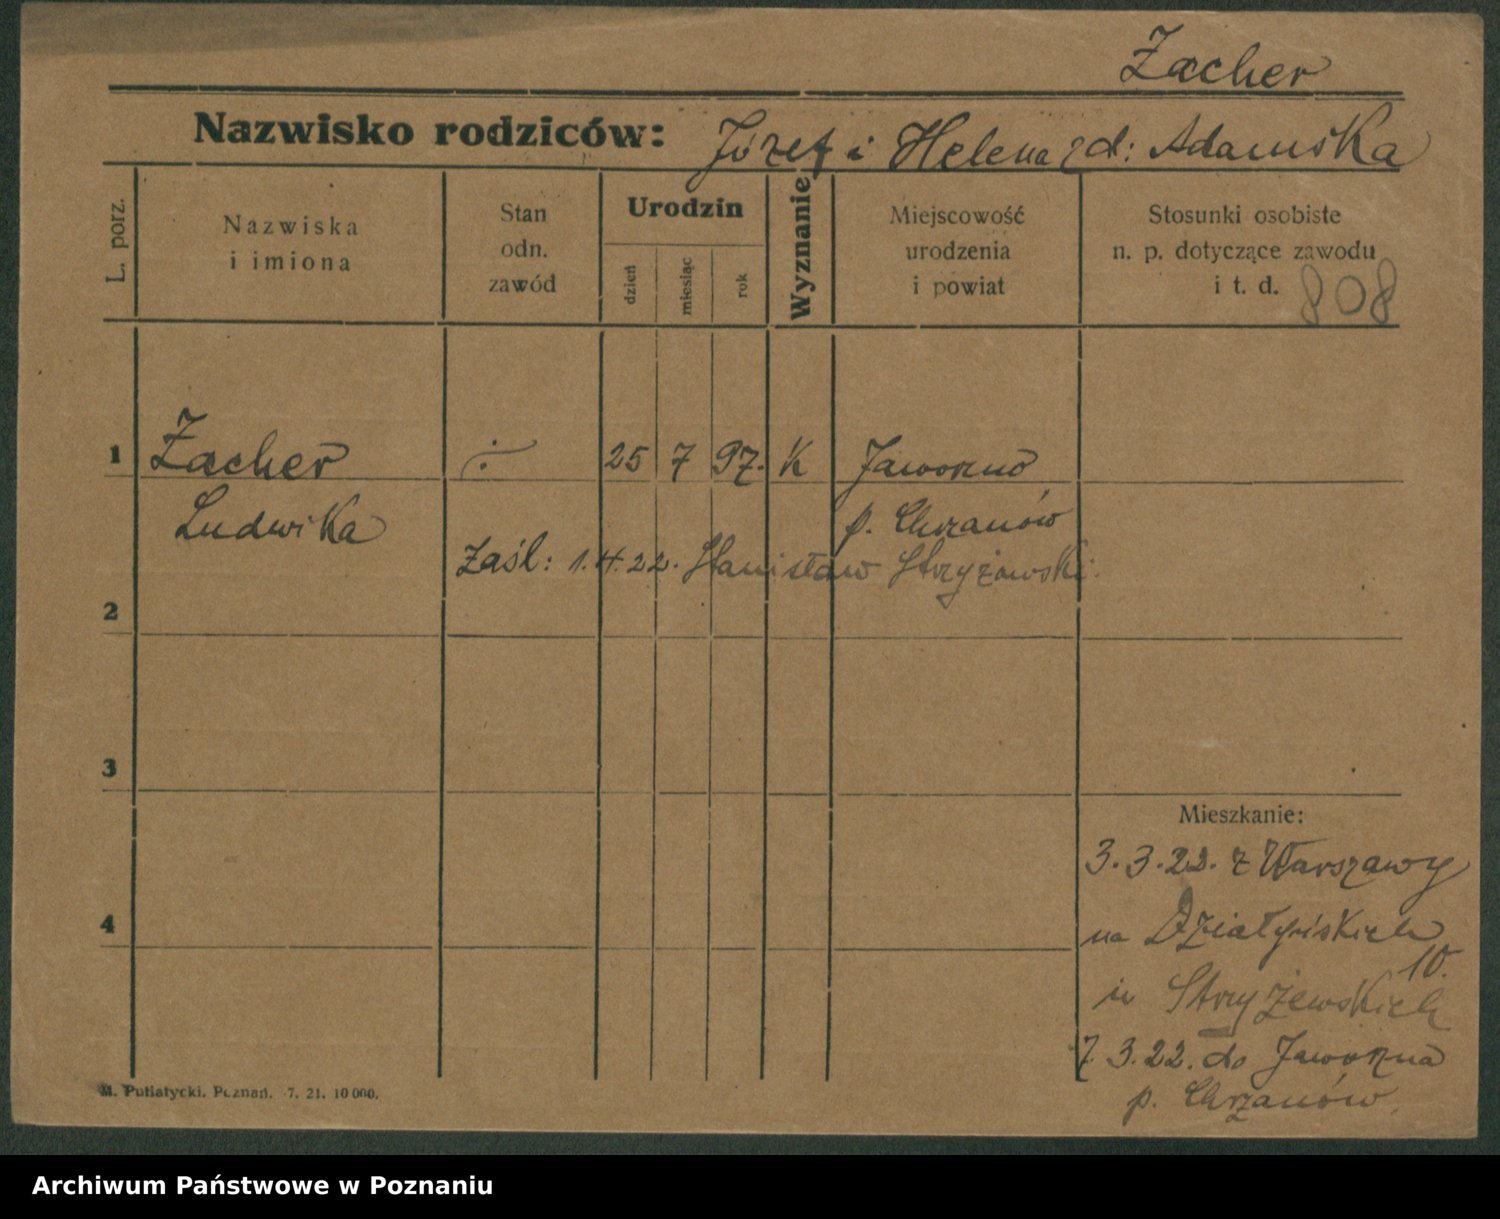 Zacher
Nazwisko rodziców: Józef i Helena zd: Adamska
L. porz.
Nazwiska
i imiona
Stan
odn.
zawód
Urodzin
dzień
miesiąc
rok
Wyznanie
Miejscowość
urodzenia
i powiat
Stosunki osobiste
n. p. dotyczące zawodu
i t. d. 808
1 Zacher ÷ 25 7 97. K Jaworzno
Ludwika p. Chrzanów
Zaśl: 1.4.22. Stanisław Stryżewski.
2
3
4
Mieszkanie:
3.3.22. z Warszawy
na Działyńskich
10.
u Stryżewskich
7.3.22. do Jaworzna
p. Chrzanów.
M. Putiatycki. Poznań. 7. 21. 10 000.
Archiwum Państwowe w Poznaniu